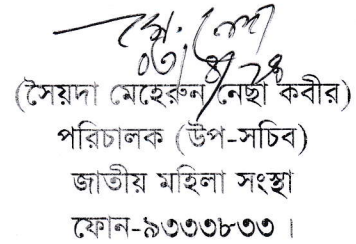 (সৈয়দা মেহেরুন নেছা কবীর)
পরিচালক (উপ-সচিব)
জাতীয় মহিলা সংস্থা
ফোন-৯৩৩৩৮৩৩ ।